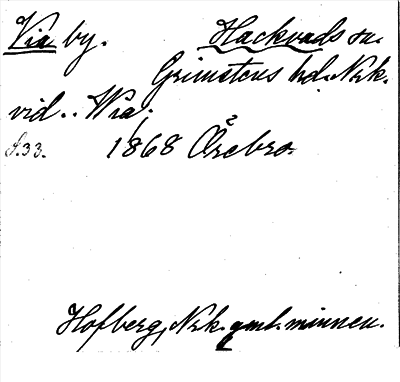 Via by. Hackvads sn.
Grimstens hd. Nrk.
vid.. Wia.
S.33. 1868 Örebro.
Hofberg, Nrk. gml. minnen.